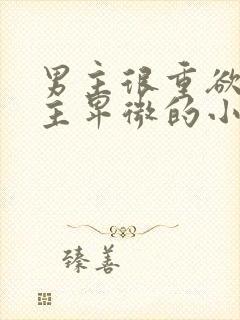 男主很重欲
主卑微的小
臻善